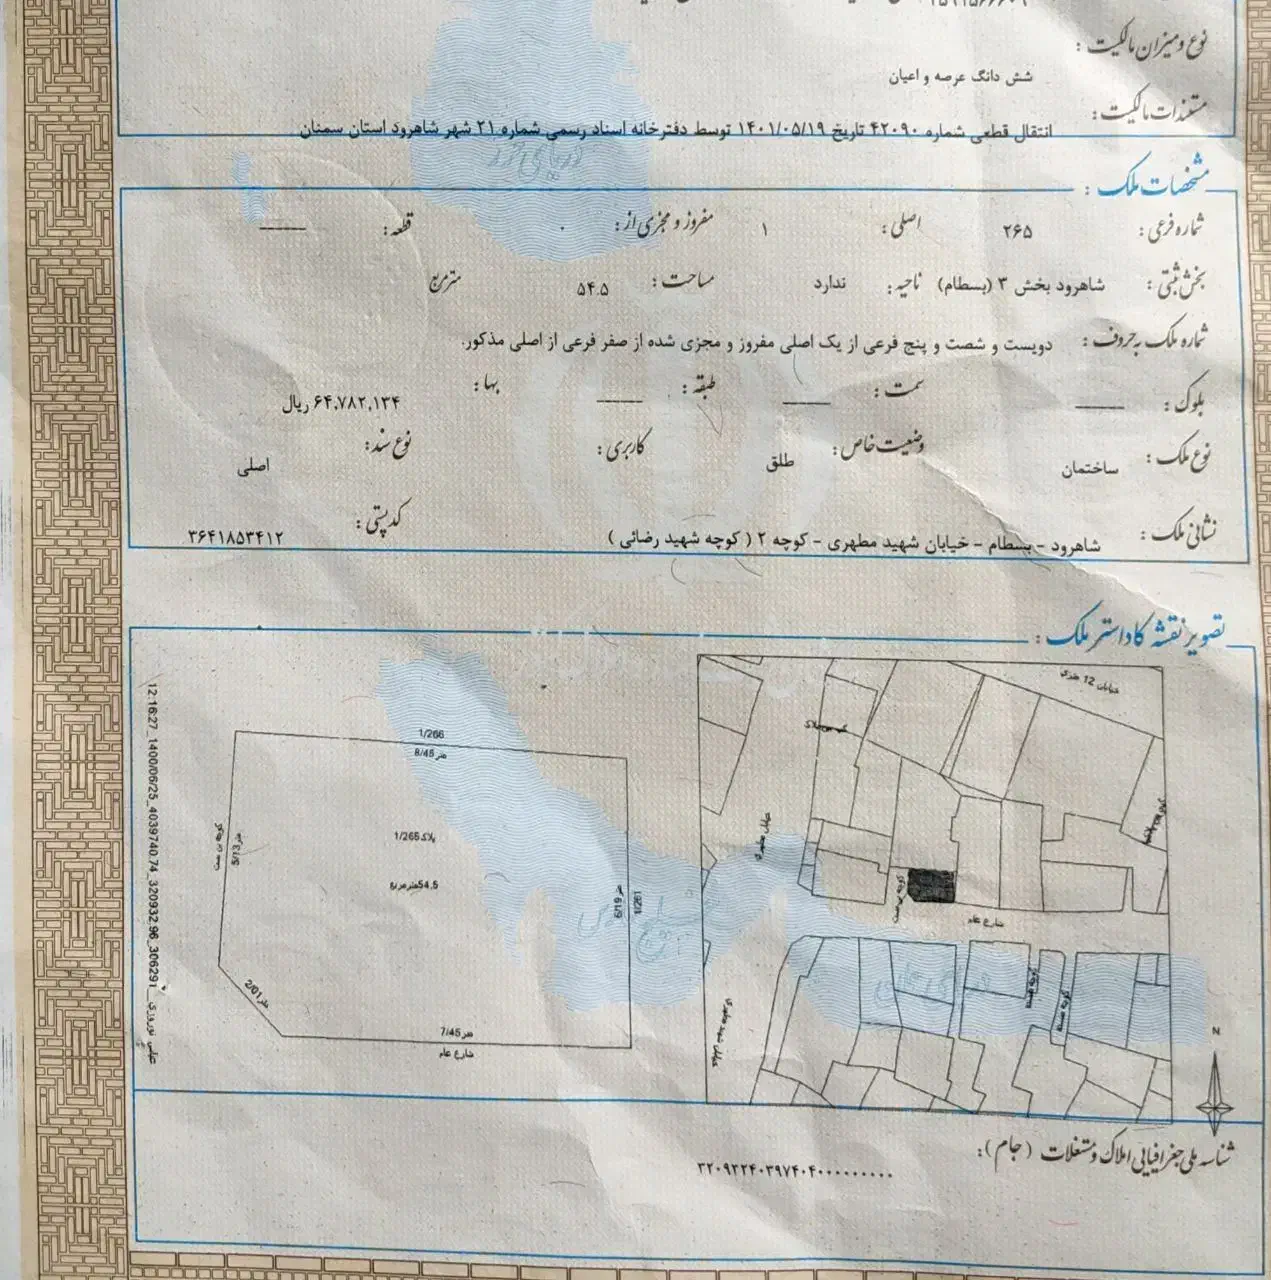 نوع و میزان مالکیت :
شش دانگ عرصه و اعیان
مستندات مالکیت :
انتقال قطعی شماره ۴۲۰۹۰ تاریخ ۱۴۰۱/۰۵/۱۹ توسط دفترخانه اسناد رسمی شماره ۲۱ شهر شاهرود استان سمنان
مشخصات ملک :
شماره فرعی : ۲۶۵ اصلی : ۱ مفروز و مجزی از : ۰ قطعه : ——
بخش ثبتی : شاهرود بخش ۳ (بسطام) ناحیه : ندارد مساحت : ۵۴.۵ مترمربع
شماره ملک به حروف : دویست و شصت و پنج فرعی از یک اصلی مفروز و مجزی شده از صفر فرعی از اصلی مذکور.
بلوک : —— سمت : —— طبقه : —— بها : ۶۴,۷۸۲,۱۳۴ ریال
نوع ملک : ساختمان وضعیت خاص : طلق کاربری : نوع سند : اصلی
نشانی ملک : شاهرود - بسطام - خیابان شهید مطهری - کوچه ۲ ( کوچه شهید رضائی ) کدپستی : ۳۶۴۱۸۵۳۴۱۲
تصویر نقشه کاداستر ملک :
خیابان 12 متری
خیابان مطهری
کوچه بن بست
شارع عام
خیابان شهید مطهری
N
1/266
8/45 متر
پلاک 1/265
54.5 مترمربع
کوچه بن بست
5/13 متر
6/19 متر
1/261
2/01 متر
7/45 متر
شارع عام
12:16:27_1400/06/25_4039740.74_320932.96_306291_عباس نوروزی
دریای خزر
خلیج فارس
دریای عمان
شناسه ملی جغرافیایی املاک و مستغلات (جام) :
۳۲۰۹۳۲۴۰۳۹۷۴۰۴۰۰۰۰۰۰۰۰۰